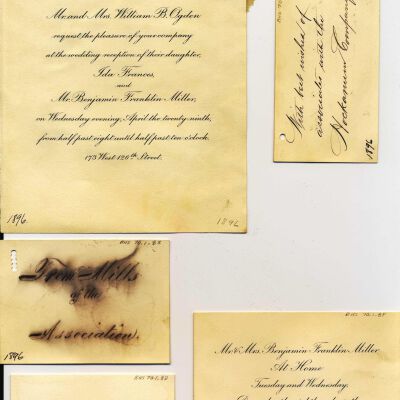 Mr. and Mrs. William B. Ogden
request the pleasure of your company
at the wedding reception of their daughter,
Ida Frances,
and
Mr. Benjamin Franklin Miller,
on Wednesday evening, April the twenty-ninth,
from half past eight until half past ten o'clock.
173 West 126th Street.
1896
1896
With best wishes of
associates with the
Hockanum Company
1896
From Mills
of the
Association.
1896
Mr. & Mrs. Benjamin Franklin Miller
At Home
Tuesday and Wednesday,